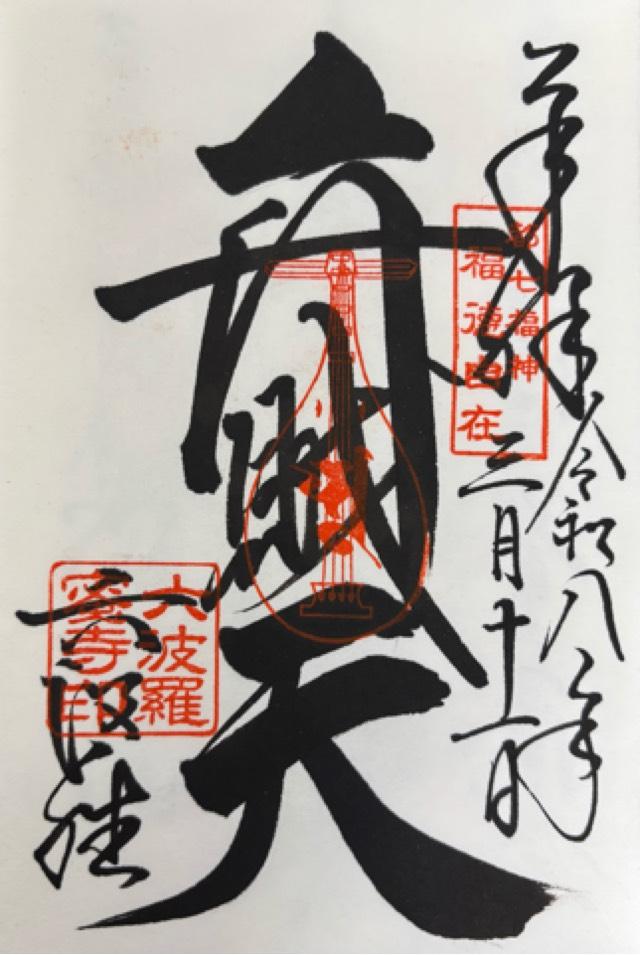 奉拝
令和八年
三月十一日
都七福神
福徳自在
弁財天
六波羅
密寺印
六波羅